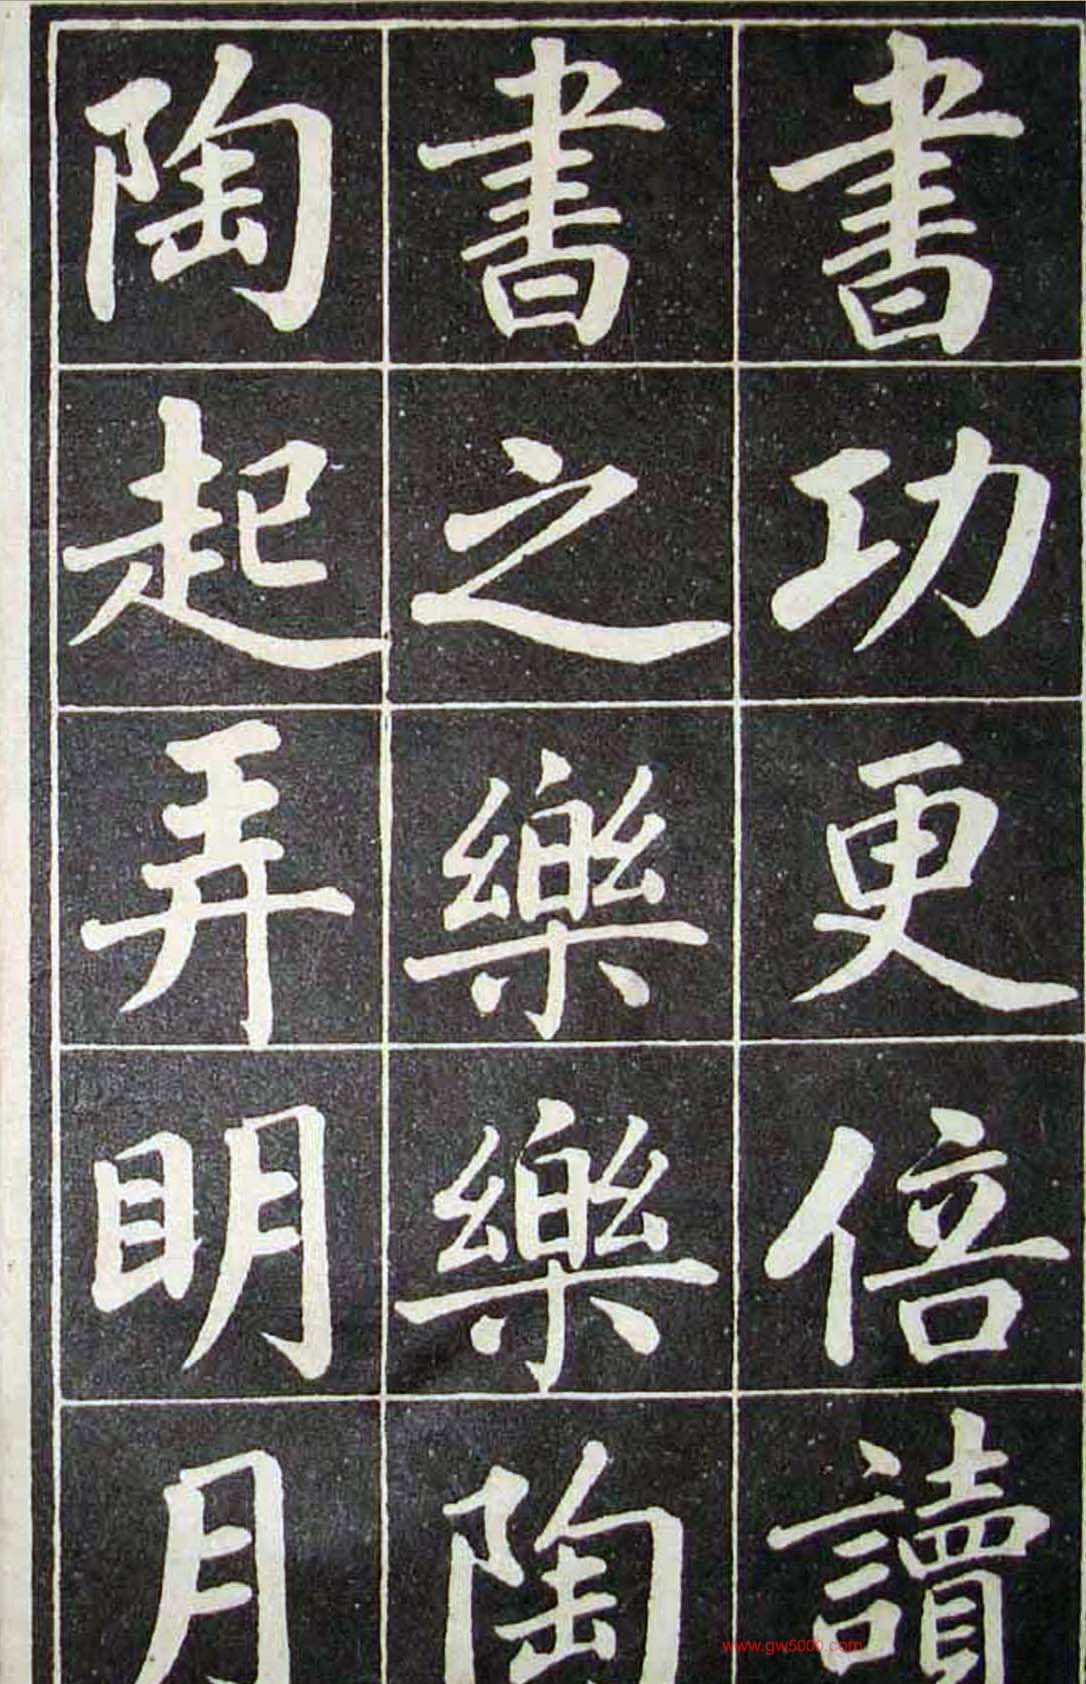 書功更倍讀
書之樂樂陶
陶起弄明月
www.gw5000.com